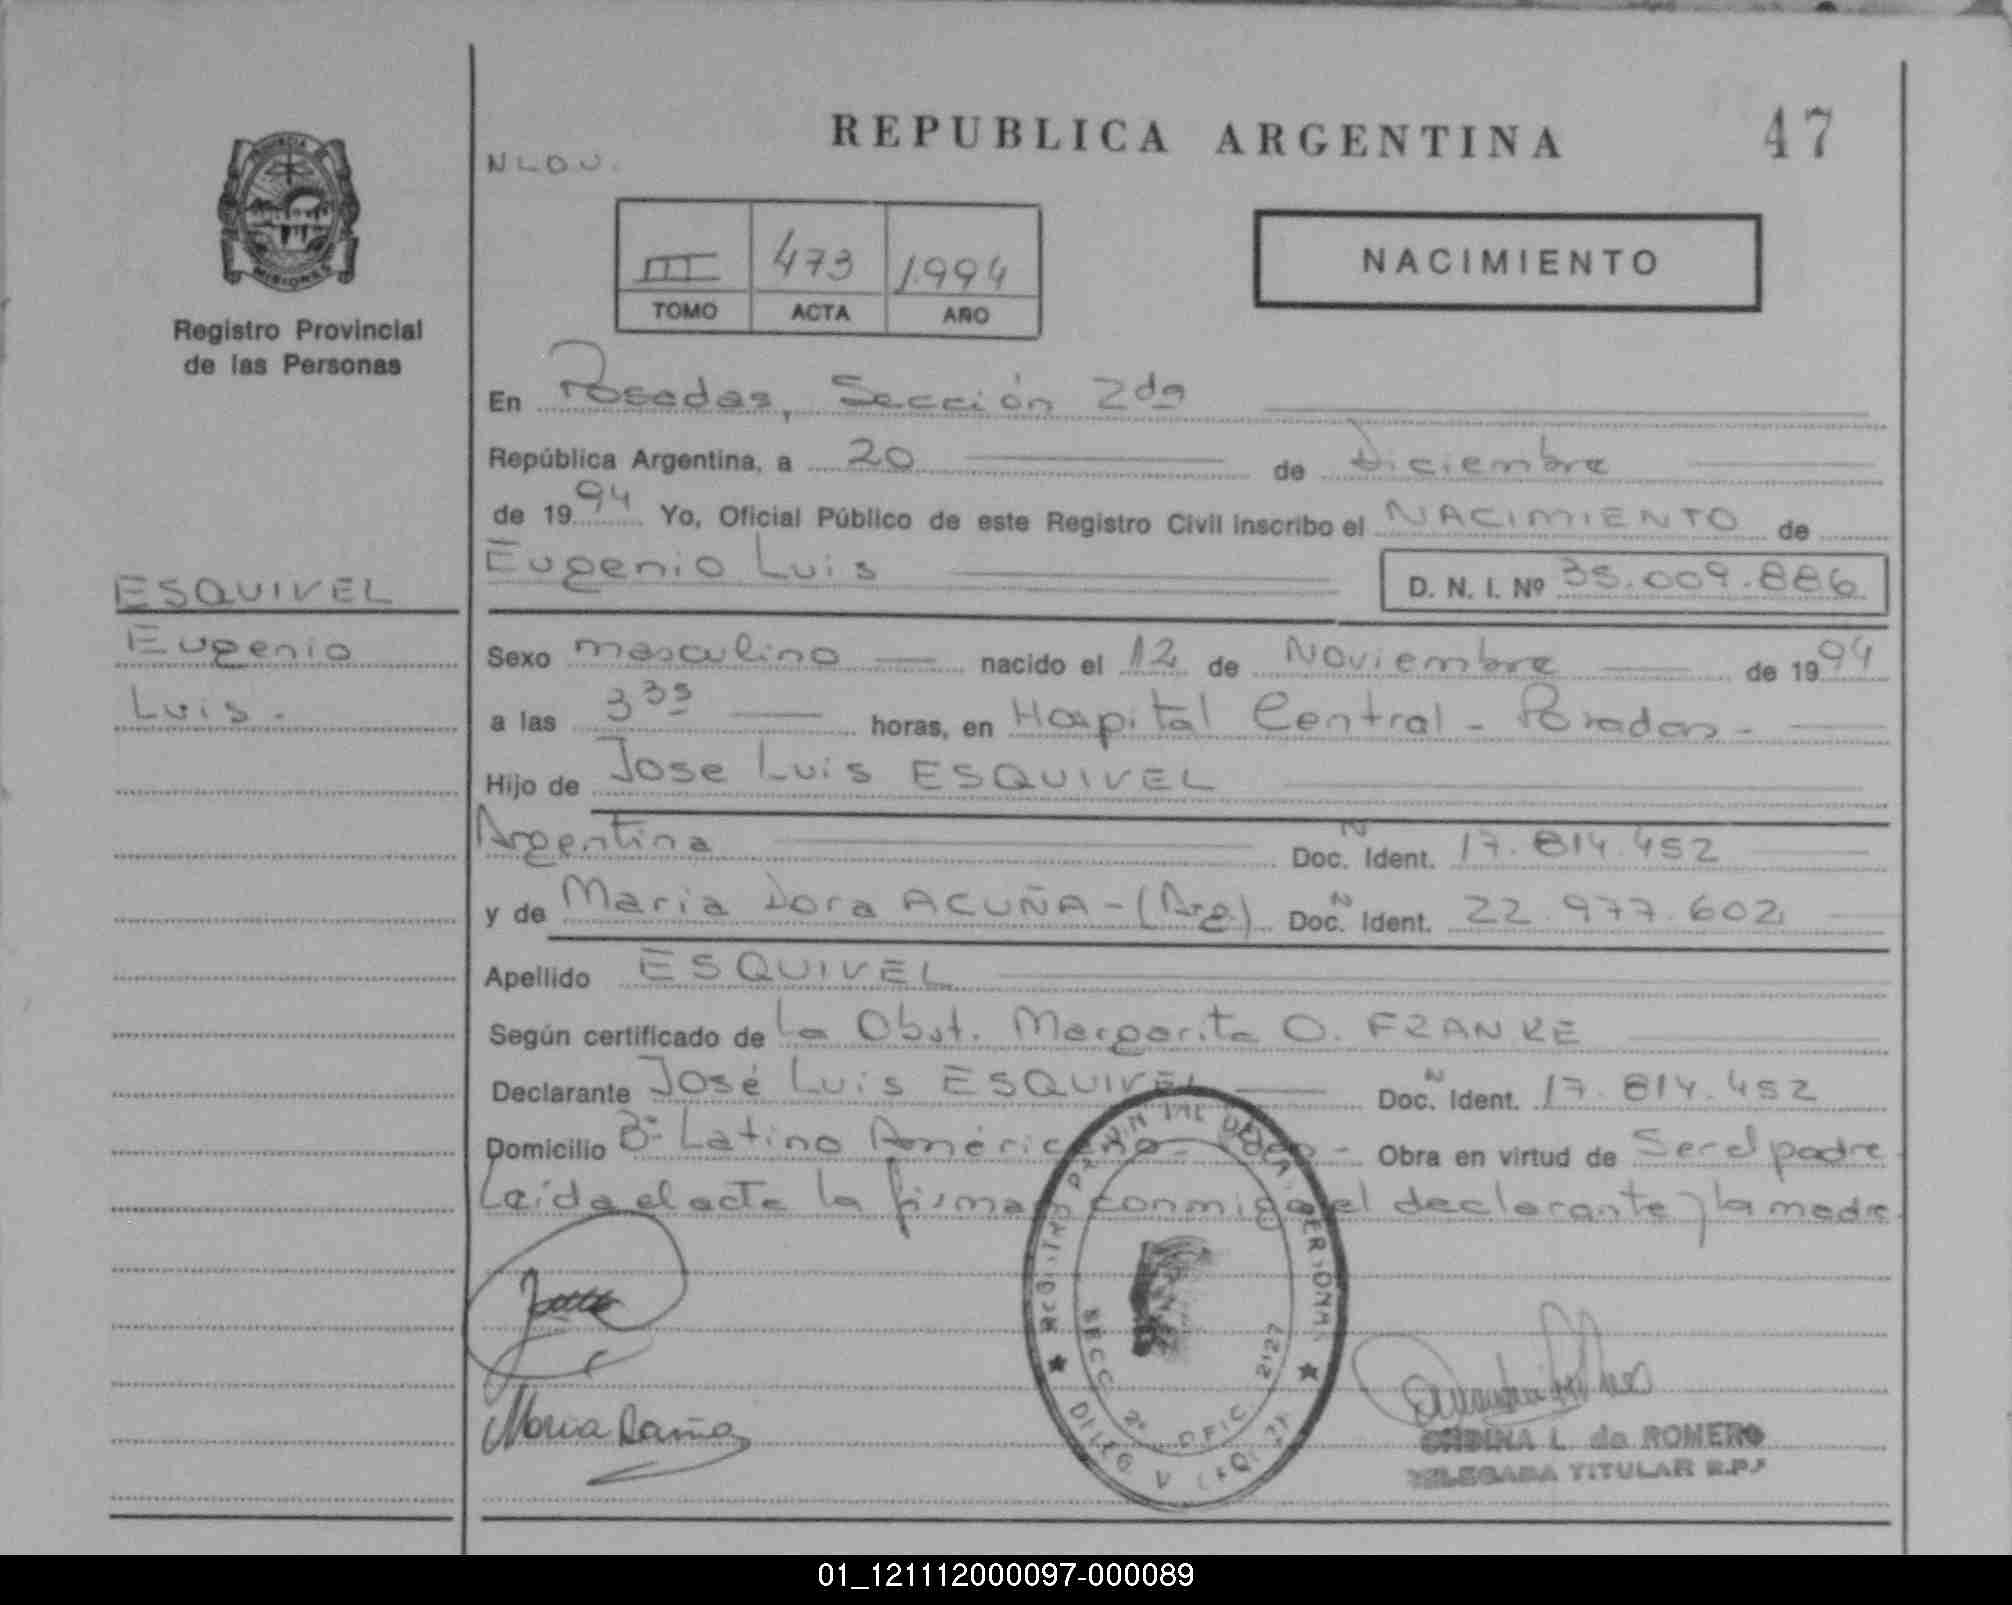 REPUBLICA ARGENTINA
47
NLDU.
III 473 1994
TOMO ACTA AÑO
NACIMIENTO
MISIONES
Registro Provincial
de las Personas
En Posadas, Sección 2da
República Argentina, a 20 de Diciembre
de 1994 Yo, Oficial Público de este Registro Civil inscribo el NACIMIENTO de
Eugenio Luis D. N. I. Nº 35.009.886
ESQUIVEL
Eugenio
Luis.
Sexo masculino nacido el 12 de Noviembre de 1994
a las 3 35 horas, en Hospital Central - Posadas -
Hijo de Jose Luis ESQUIVEL
Argentina Doc. N Ident. 17.814.452
y de Maria Dora ACUÑA - (Arg.) Doc. N Ident. 22.977.602
Apellido ESQUIVEL
Según certificado de la Obst. Margarita O. FRANKE
Declarante José Luis ESQUIVEL Doc. N Ident. 17.814.452
Domicilio Bº Latino América Obra en virtud de Ser el padre
Leída el acta la firman conmigo el declarante y la madre.
SECC. 2º OFIC. 2127
L. de ROMERO
DELEGADA TITULAR R.P.P
01_121112000097-000089